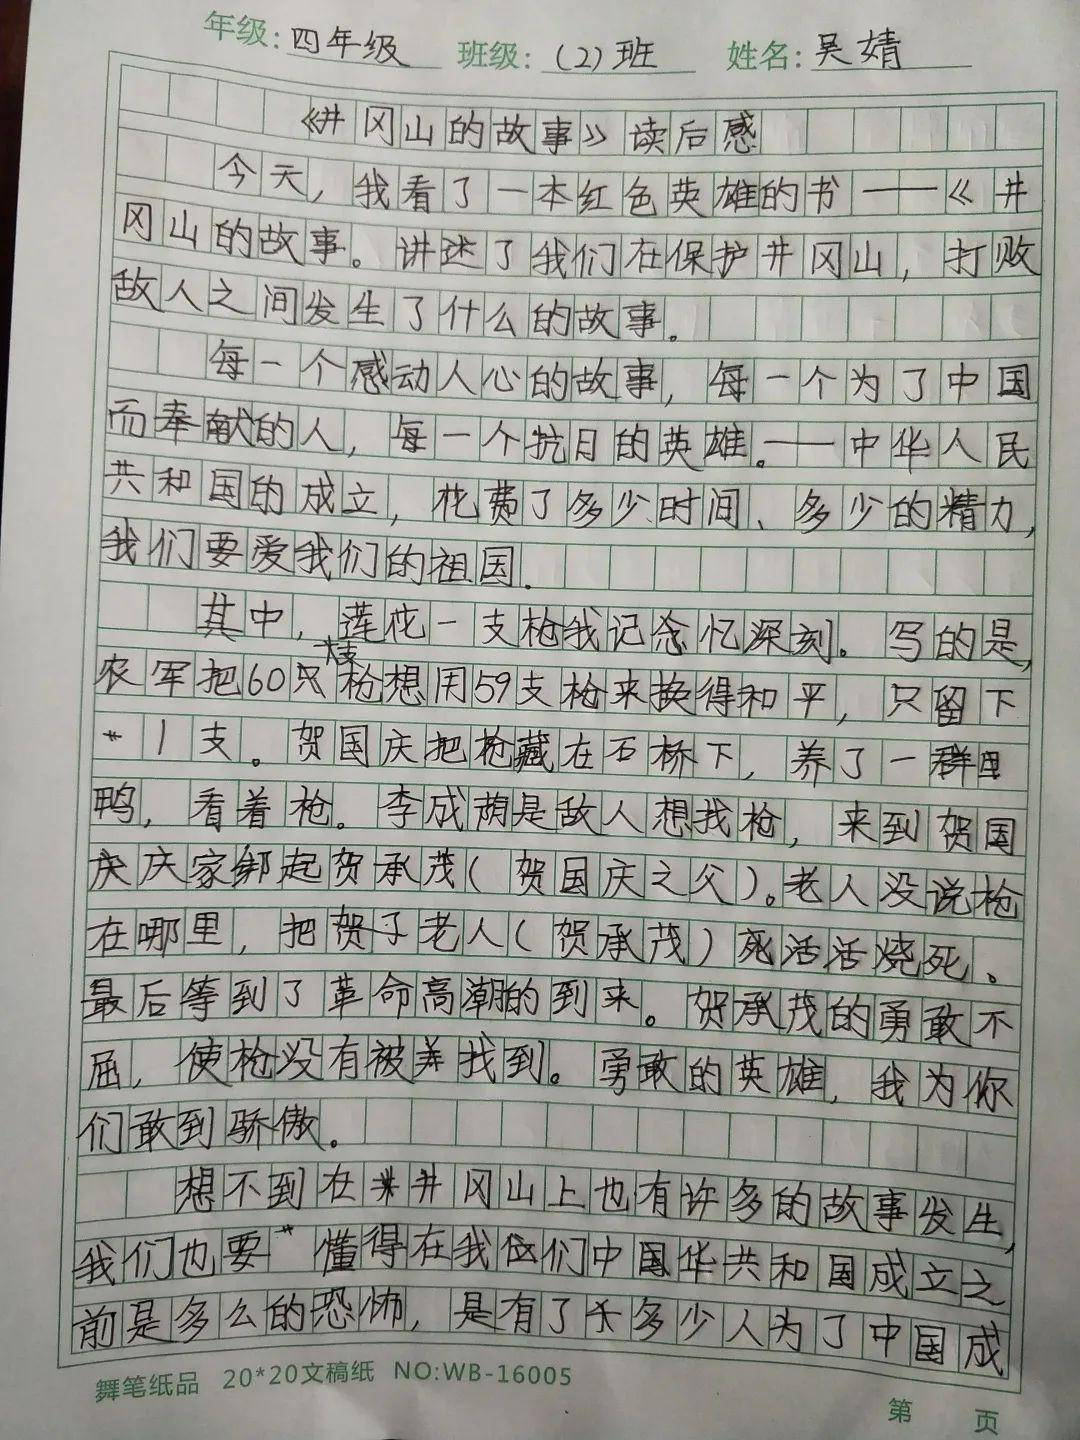 年级:四年级 班级:(2)班 姓名:吴婧
《井冈山的故事》读后感
今天,我看了一本红色英雄的书——《井
冈山的故事。讲述了我们在保护井冈山,打败
敌人之间发生了什么的故事。
每一个感动人心的故事,每一个为了中国
而奉献的人,每一个抗日的英雄。——中华人民
共和国的成立,花费了多少时间、多少的精力,
我们要爱我们的祖国.
其中,莲花一支枪我记念忆深刻。写的是,
农军把60只枪想用59支枪来换得和平,只留下
1支。贺国庆把枪藏在石桥下,养了一群
鸭,看着枪。李成荫是敌人想找枪,来到贺国
庆家绑起贺承茂(贺国庆之父)。老人没说枪
在哪里,把贺子老人(贺承茂)死活活烧死、
最后等到了革命高潮的到来。贺承茂的勇敢不
屈,使枪没有被弄找到。勇敢的英雄,我为你
们敢到骄傲。
想不到在井冈山上也有许多的故事发生,
我们也要懂得在我们中国华共和国成立之
前是多么的恐怖,是有了多少人为了中国成
舞笔纸品 20*20文稿纸 NO:WB-16005
第 页